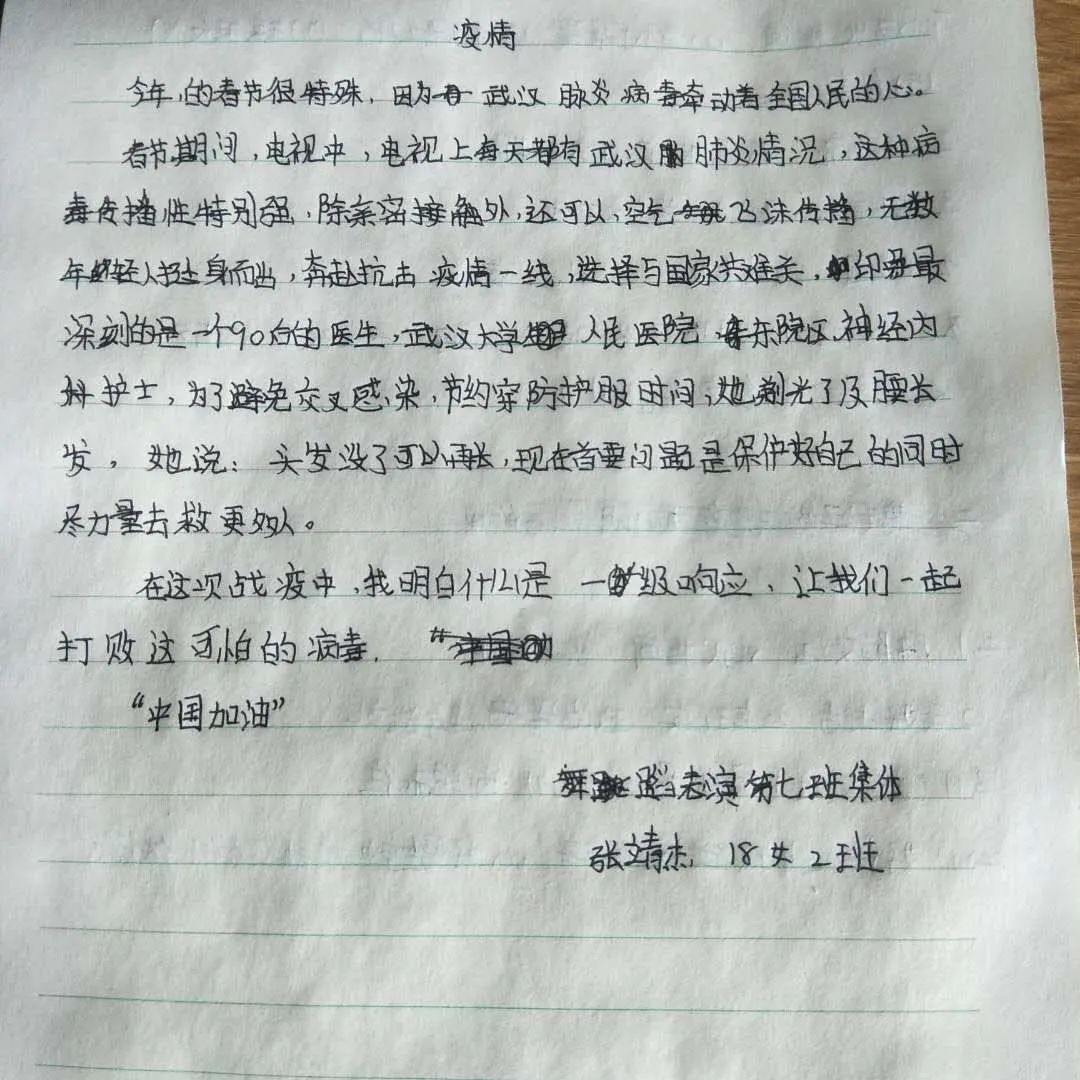 疫情
今年的春节很特殊，因为 武汉 肺炎 病毒牵动着全国人民的心。
春节期间，电视中，电视上每天都有武汉 肺炎情况，这种病
毒传播性特别强，除亲密接触外，还可以，空气 飞沫传播，无数
年轻人挺身而出，奔赴抗击 疫情一线，选择与国家共难关，印象最
深刻的是一个90后的医生，武汉大学 人民医院，东院区，神经内
科护士，为了避免交叉感染，节约穿防护服时间，她剃光了及腰长
发，她说：头发没了可以再长，现在首要问题是保护好自己的同时
尽力量去救更多人。
在这项战疫中，我明白什么是 一级响应，让我们一起
打败这可怕的病毒，
“中国加油”
舞蹈表演第七班集体
张靖杰，18 2班